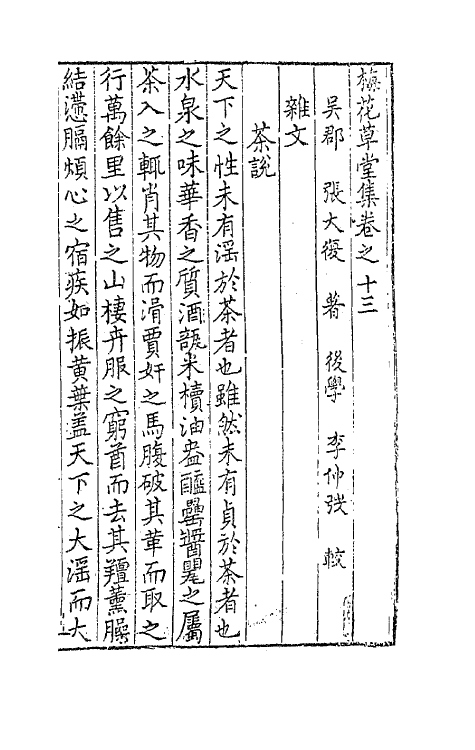 梅花草堂集卷之十三
吳郡 張大復 著 後學 李仲 較
雜文
茶說
天下之性未有滛於茶者也雖然未有貞於茶者也
水泉之味華香之質酒瓿米櫝油盎醯罍醬罌之屬
茶入之輒肖其物而滑賈奸之馬腹破其革而取之
行萬餘里以售之山棲卉服之窮酋而去其羶薰臊
結懣膈煩心之宿疾如振黄葉盖天下之大滛而大